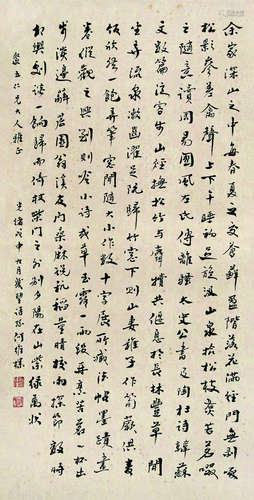 余家深山之中每春夏之交蒼蘚盈階落花滿徑門無剥啄
松影參差禽聲上下午睡初足旋汲山泉拾松枝煑苦茗啜
之隨意讀周易國風左氏傳離騷太史公書及陶杜詩韓蘇
文數篇從容步山徑撫松竹与麛犢共偃息於長林豐草間
坐弄流泉漱濯足既歸竹窗下則山妻稚子作筍蕨供麥
飯欣然一飽弄筆窗間隨大小作數十字展所藏法帖墨蹟畫
卷縱觀之興到則吟小詩或草玉露一兩段再烹苦茗一杯出
步溪邊解后園翁溪友問桑麻說秔稻量晴校雨探節數時
相與劇談一餉歸而倚杖柴門之下則夕陽在山紫綠萬狀
五仁兄大人雅正
光緒戊申九月